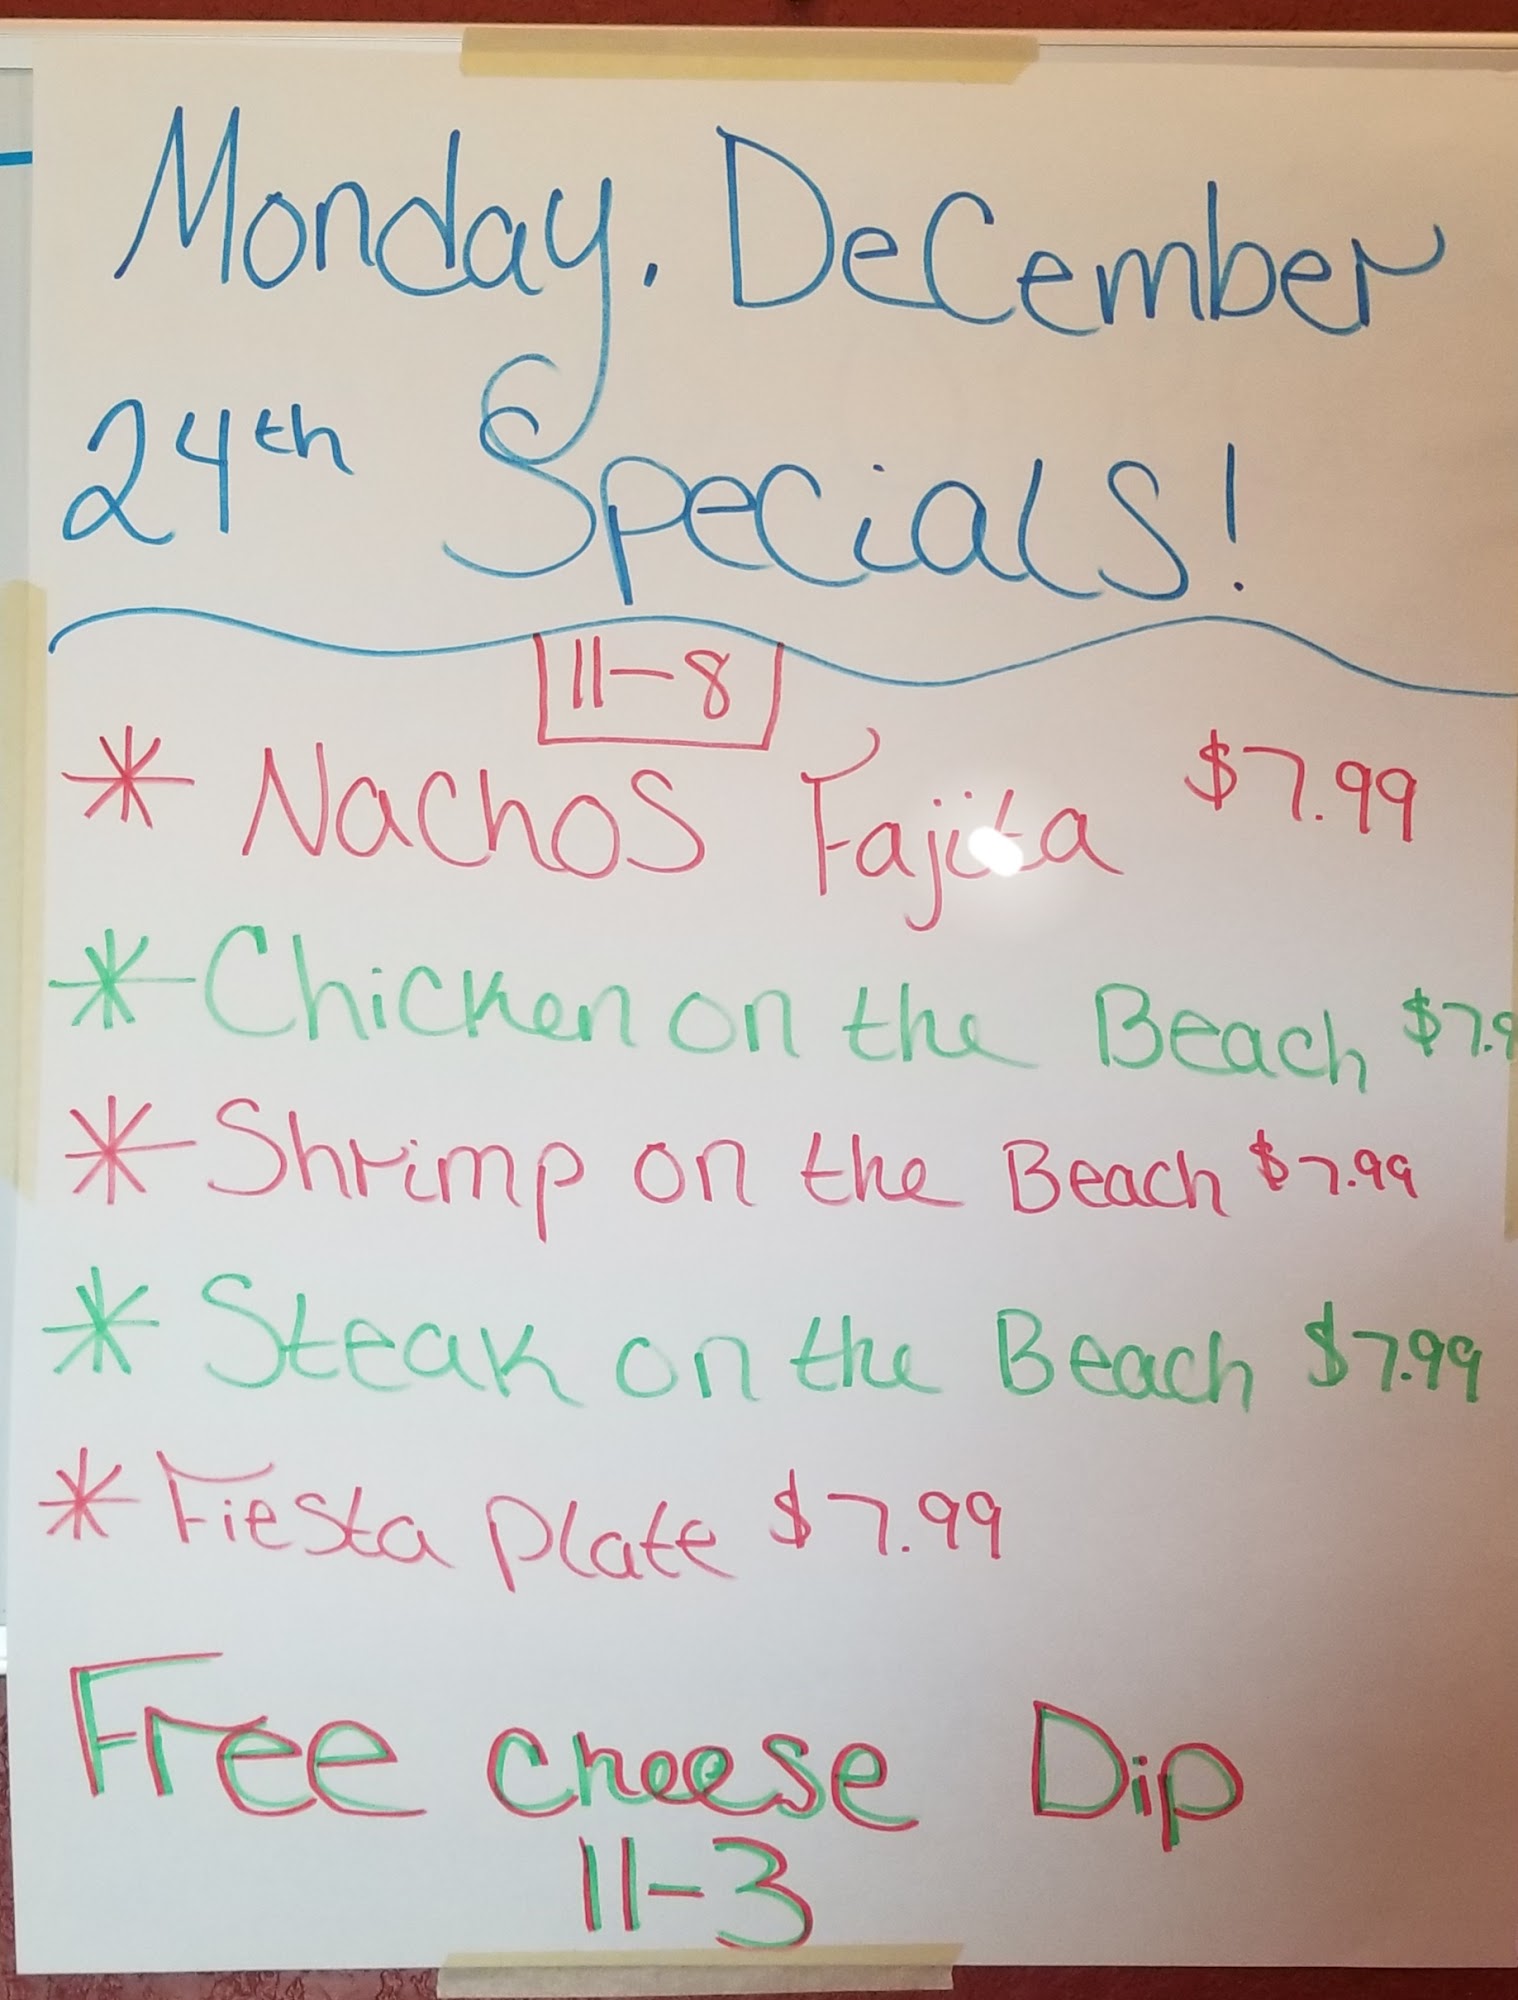 Monday, December
24th Specials!
11-8
* Nachos Fajita $7.99
* Chicken on the Beach $7.9
* Shrimp on the Beach $7.99
* Steak on the Beach $7.99
* Fiesta Plate $7.99
Free cheese Dip
11-3